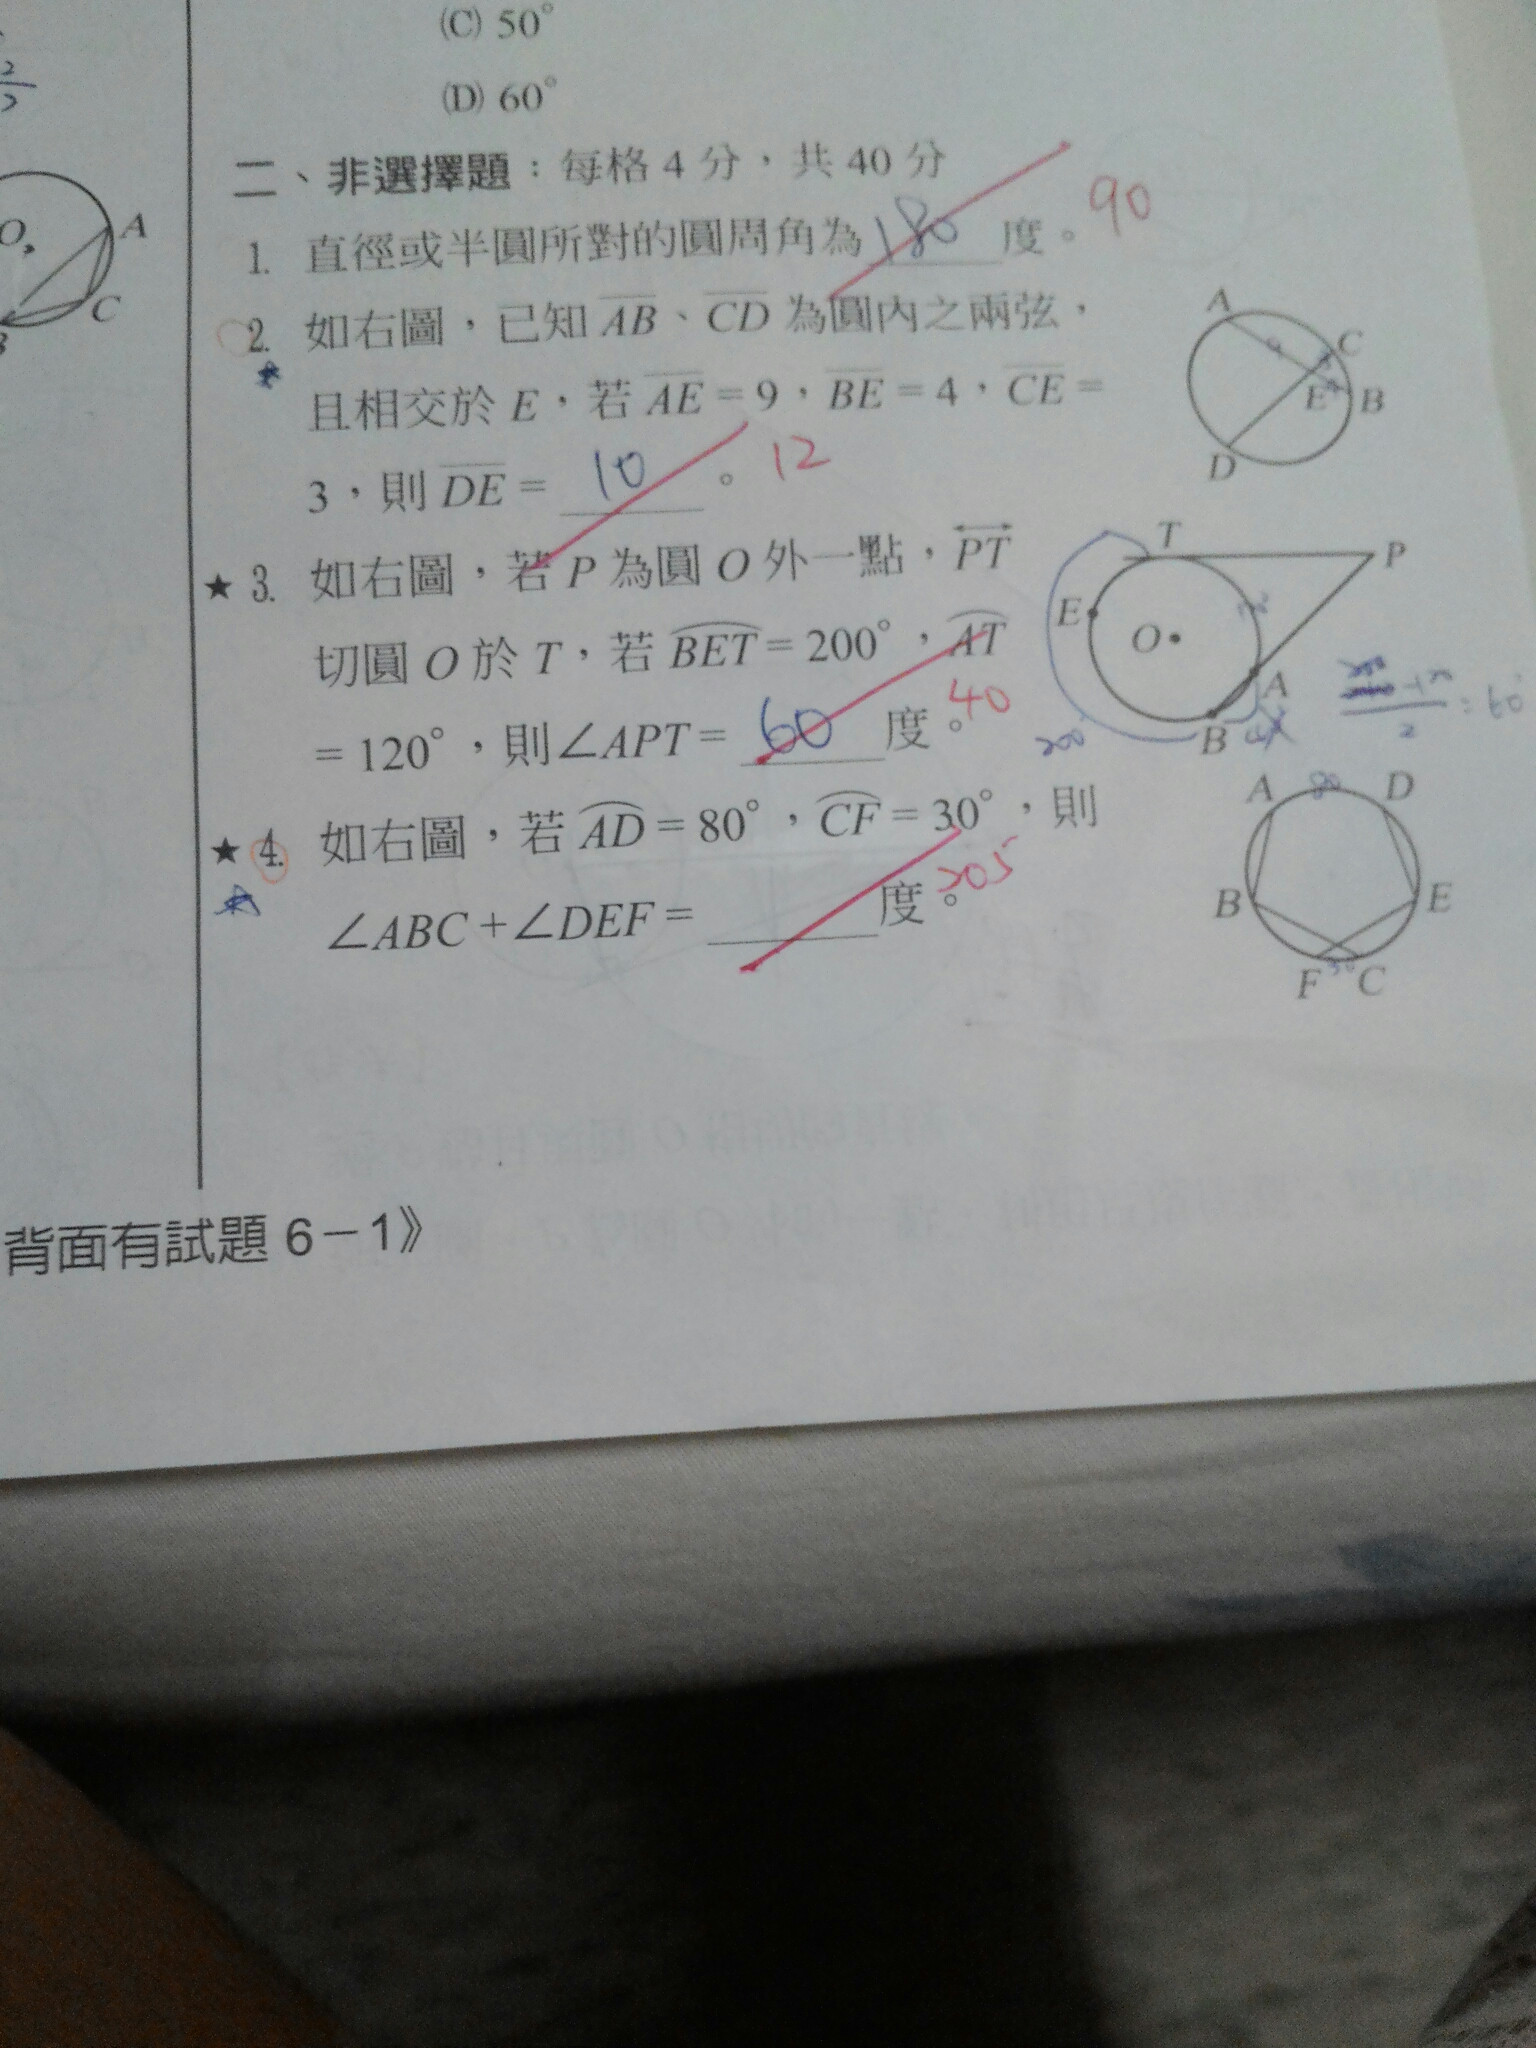 (C) 50°
(D) 60°
二、非選擇題：每格 4 分，共 40 分
1. 直徑或半圓所對的圓周角為 180 度。 90
2. 如右圖，已知 AB、CD 為圓內之兩弦，
且相交於 E，若 AE = 9，BE = 4，CE =
3，則 DE = 10 。 12
A
C
E
B
D
★ 3. 如右圖，若 P 為圓 O 外一點，PT
切圓 O 於 T，若 BET = 200°，AT
= 120°，則∠APT = 60 度。 40
T
P
E
O
A
B
200
★ 4. 如右圖，若 AD = 80°，CF = 30°，則
∠ABC + ∠DEF = 度。 205
A
80
D
B
E
F
30
C
背面有試題 6－1》
O
A
C